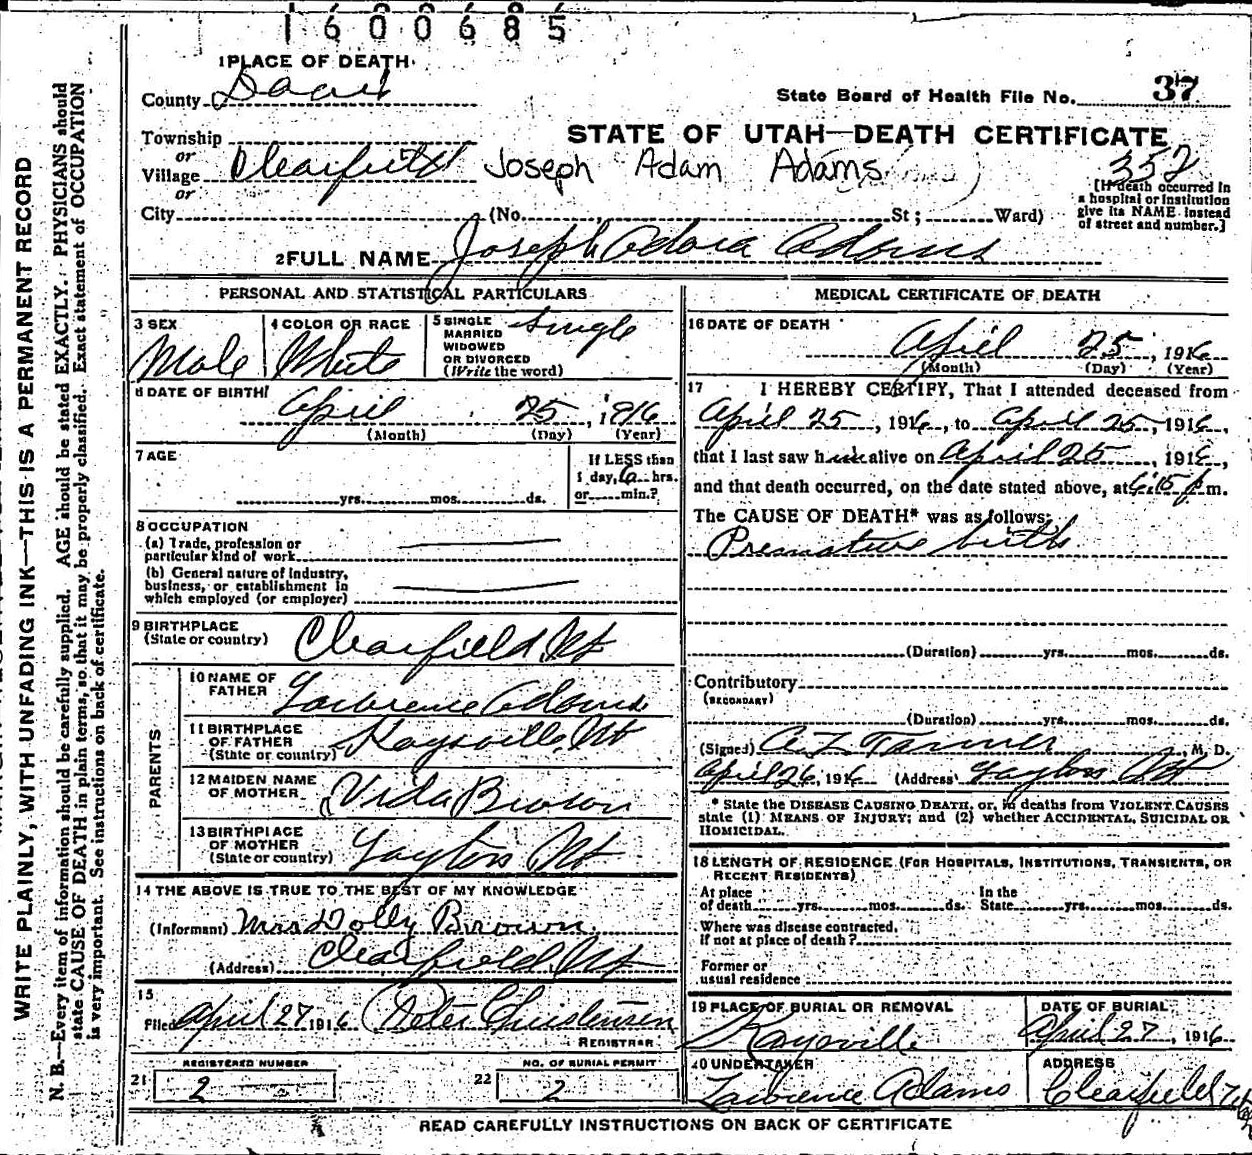 1600685
1 PLACE OF DEATH
County Davis
State Board of Health File No. 37
STATE OF UTAH—DEATH CERTIFICATE
Township
or
Village Clearfield Joseph Adam Adams 352
or
City (No. St; Ward)
[If death occurred in
a hospital or institution
give its NAME instead
of street and number.]
2 FULL NAME Joseph Adams
PERSONAL AND STATISTICAL PARTICULARS
3 SEX
Male
4 COLOR OR RACE
White
5 SINGLE
MARRIED
WIDOWED
OR DIVORCED
(Write the word)
Single
6 DATE OF BIRTH
April 25, 1916
(Month) (Day) (Year)
7 AGE
yrs. mos. ds.
If LESS than
1 day, 6 hrs.
or min.?
8 OCCUPATION
(a) Trade, profession or
particular kind of work
(b) General nature of Industry,
business, or establishment in
which employed (or employer)
9 BIRTHPLACE
(State or country) Clearfield, Ut
PARENTS
10 NAME OF
FATHER Lawrence Adams
11 BIRTHPLACE
OF FATHER
(State or country) Kaysville, Ut
12 MAIDEN NAME
OF MOTHER Vida Brown
13 BIRTHPLACE
OF MOTHER
(State or country) Layton Ut
14 THE ABOVE IS TRUE TO THE BEST OF MY KNOWLEDGE
(Informant) Mrs Dolly Brown
(Address) Clearfield, Ut
15
Filed April 27 1916 Peter Christensen
REGISTRAR
REGISTERED NUMBER
21 2
NO. OF BURIAL PERMIT
22 2
MEDICAL CERTIFICATE OF DEATH
16 DATE OF DEATH
April 25, 1916
(Month) (Day) (Year)
17 I HEREBY CERTIFY, That I attended deceased from
April 25, 1916, to April 25, 1916,
that I last saw him alive on April 25, 1916,
and that death occurred, on the date stated above, at 6:15 p m.
The CAUSE OF DEATH* was as follows:
Premature birth
(Duration) yrs. mos. ds.
Contributory
(SECONDARY)
(Duration) yrs. mos. ds.
(Signed) A. Z. Tanner, M. D.
April 26, 1916 (Address) Layton Ut
* State the DISEASE CAUSING DEATH, or, in deaths from VIOLENT CAUSES
state (1) MEANS OF INJURY; and (2) whether ACCIDENTAL, SUICIDAL OR
HOMICIDAL.
18 LENGTH OF RESIDENCE (FOR HOSPITALS, INSTITUTIONS, TRANSIENTS, OR
RECENT RESIDENTS)
At place
of death yrs. mos. ds. In the
State yrs. mos. ds.
Where was disease contracted,
if not at place of death?
Former or
usual residence
19 PLACE OF BURIAL OR REMOVAL
Kaysville
DATE OF BURIAL
April 27, 1916
20 UNDERTAKER
Lawrence Adams
ADDRESS
Clearfield
READ CAREFULLY INSTRUCTIONS ON BACK OF CERTIFICATE
WRITE PLAINLY, WITH UNFADING INK—THIS IS A PERMANENT RECORD
N. B.—Every item of information should be carefully supplied. AGE should be stated EXACTLY. PHYSICIANS should
state CAUSE OF DEATH in plain terms, so that it may be properly classified. Exact statement of OCCUPATION
is very important. See instructions on back of certificate.